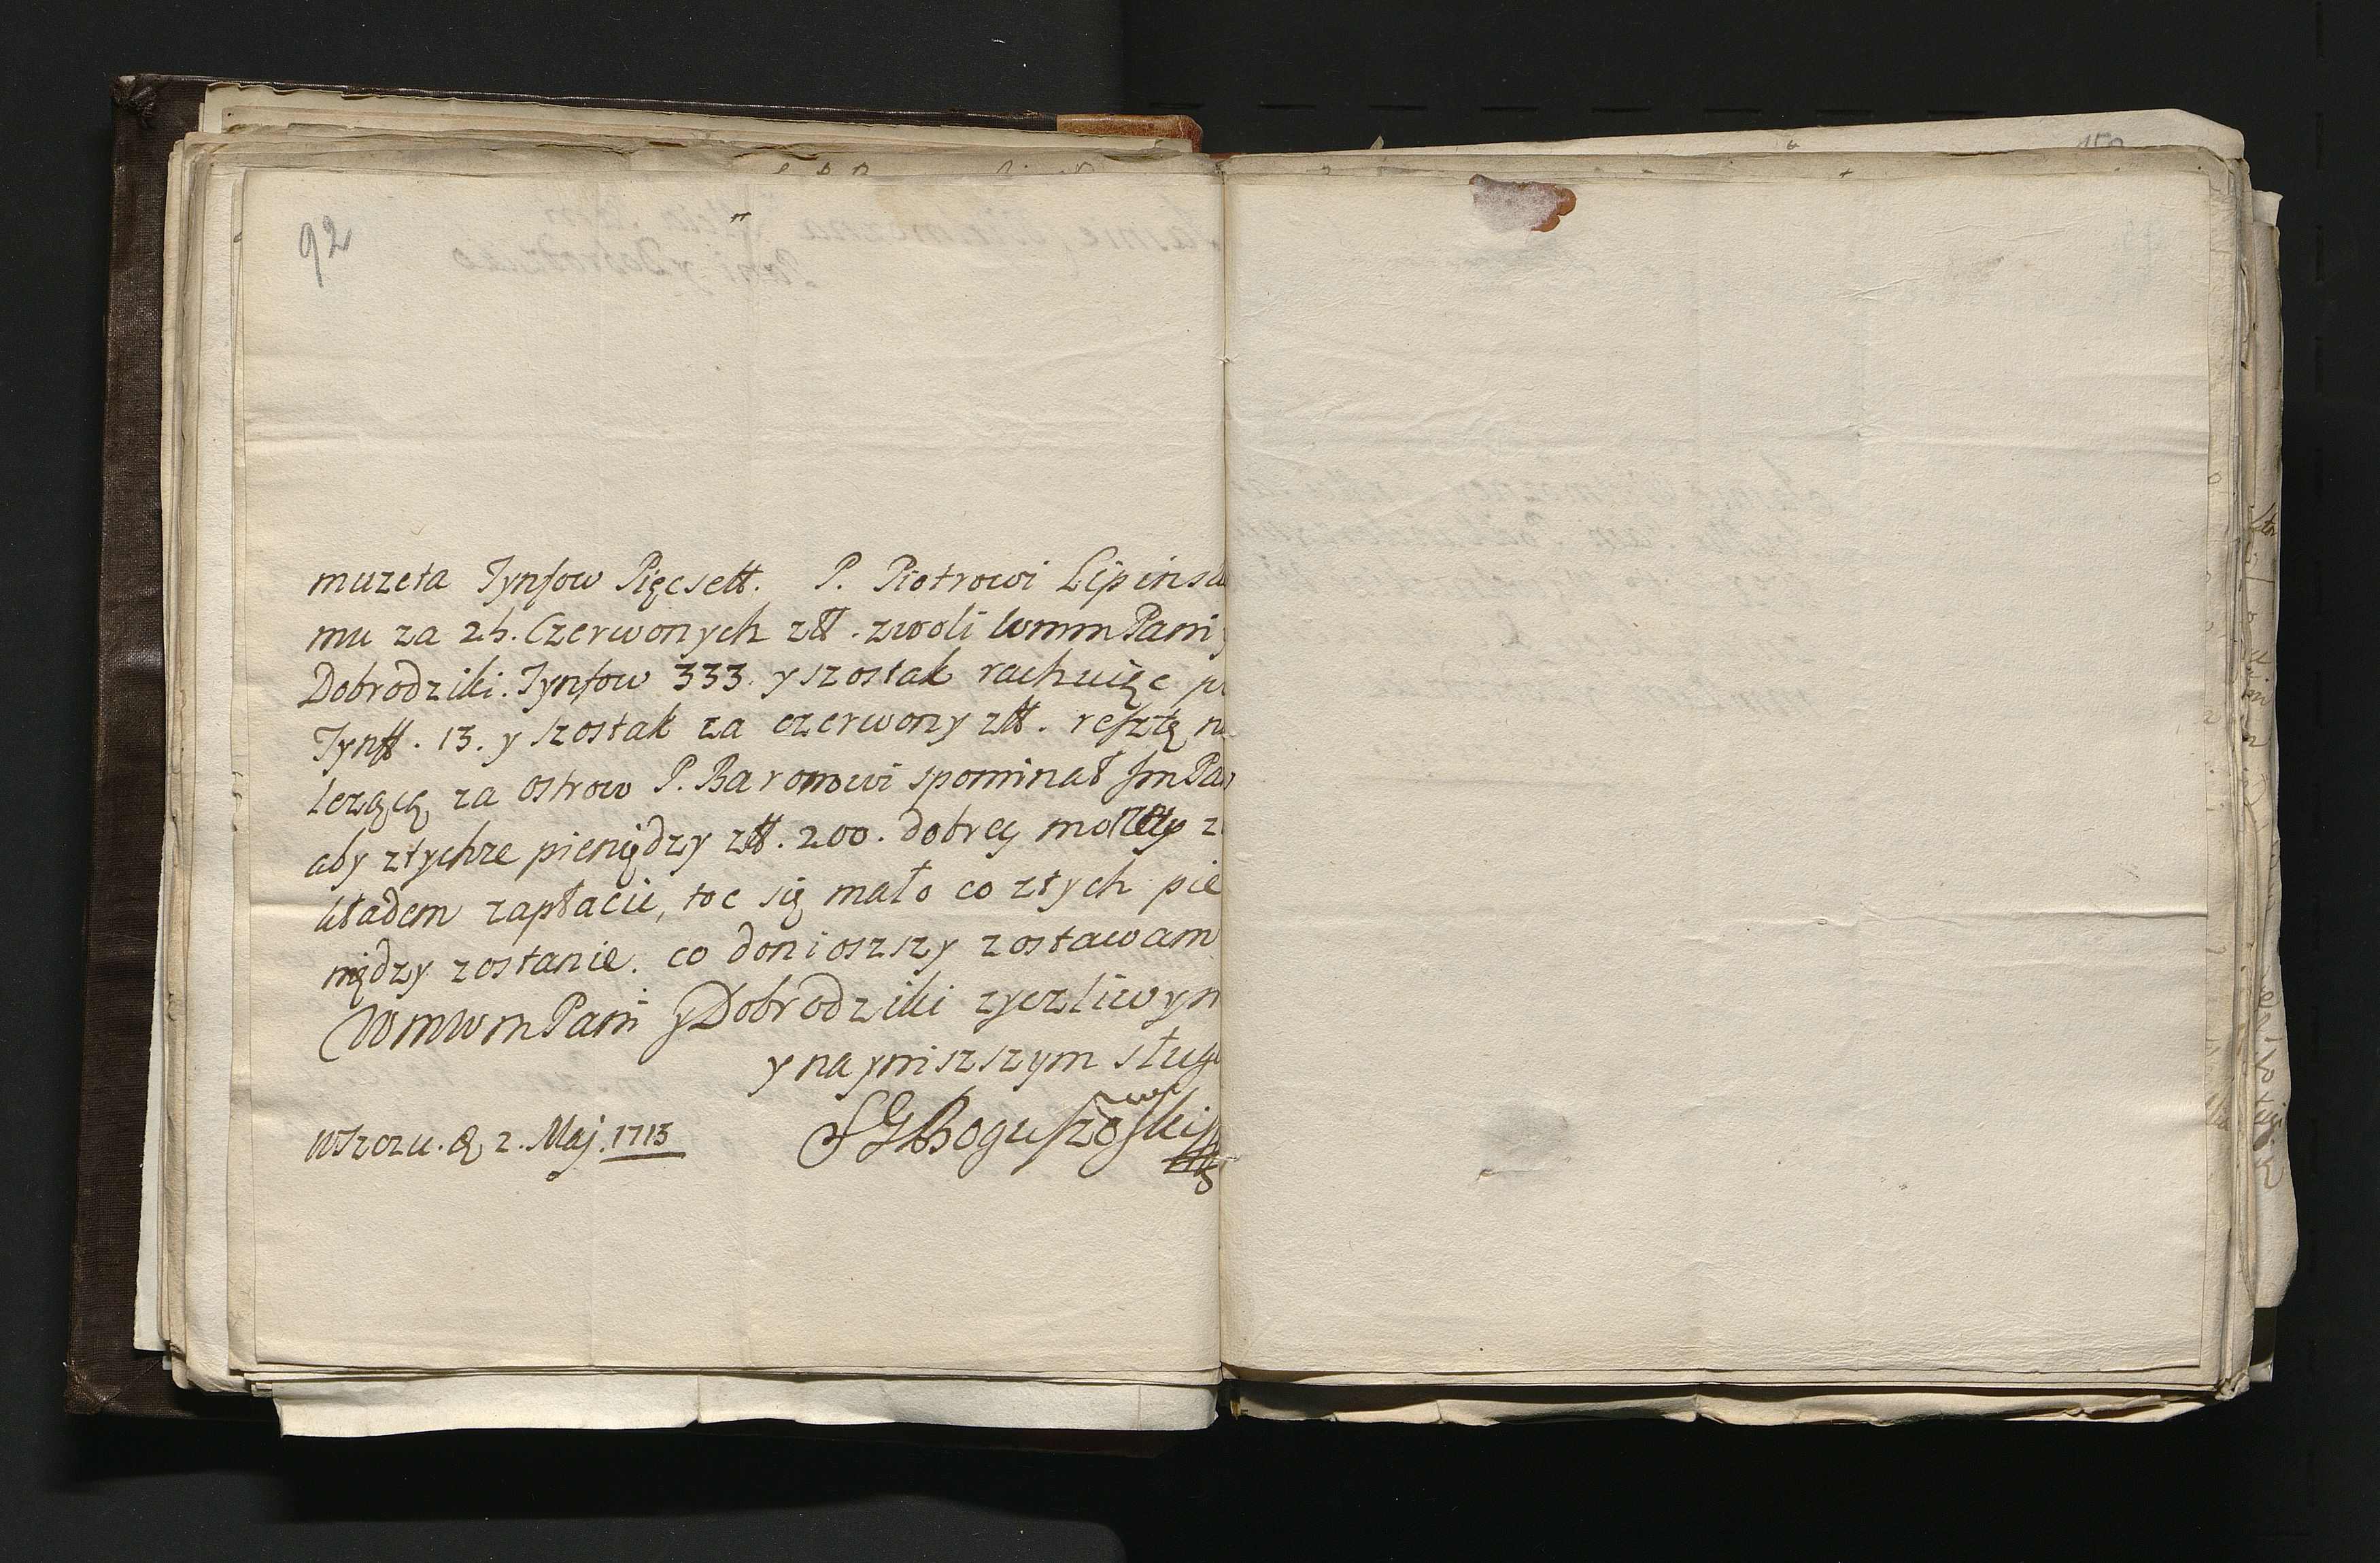 92
muzeta Tynfow Pięcsett. P. Piotrowi Lipinsk
mu za 25. Czerwonych zlł. zwoli wmm Pani y
Dobrodziki. Tynfow 333. y szostak rachuięc p
Tynff. 13. y szostak za czerwony zlł. resztę n
lezącą za ostrow P. Baronowi spominał Jm Pa
aby ztychze pieniędzy zlł. 200. dobrey
kładem zapłacic, toc się mało co ztych pie
niędzy zostanie. co donioszszy zostawam
WmWm Pani y Dobrodziki zyczliwym
y nayniszszym sług
SGBoguszowski
2. Maj. 1713